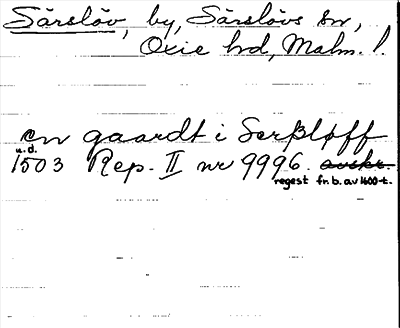 Särslöv, by, Särslövs sn,
Oxie hd, Malm. l.
en gaardt i Serßløff
u.d.
1503 Rep. II nr 9996. avskr.
regest fr. b. av 1600-t.